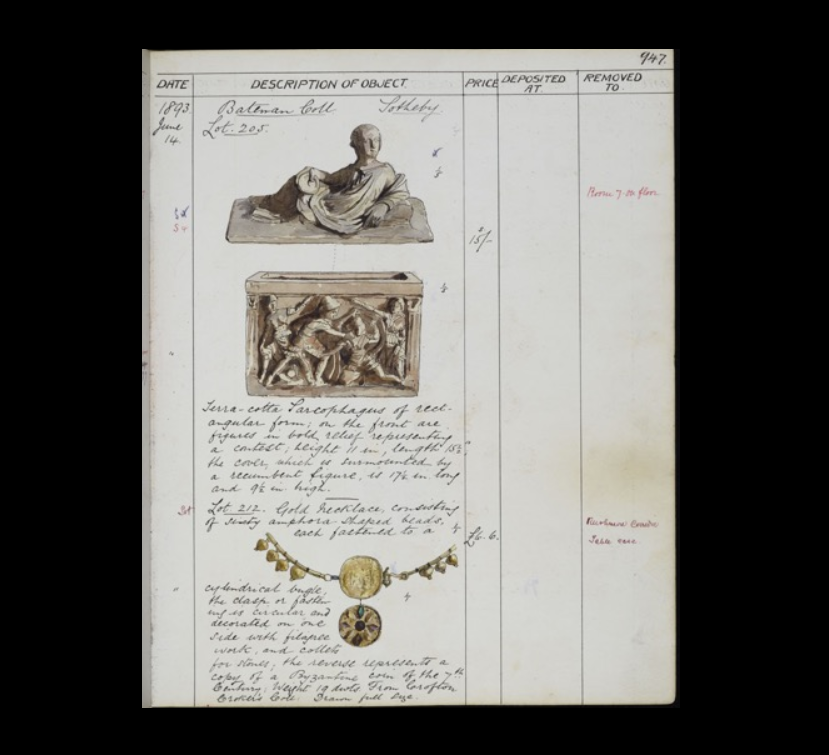 947.
DATE DESCRIPTION OF OBJECT. PRICE DEPOSITED AT. REMOVED TO.
1893. Bateman Coll Sotheby.
June Lot. 205.
14.
Room 7. floor
15/-
Terra-cotta Sarcophagus of rect-
angular form; on the front are
figures in bold relief representing
a contest; height 11 in, length 15½";
the cover, which is surmounted by
a recumbent figure, is 17½ in. long
and 9½ in. high.
Lot. 212. Gold Necklace, consisting
of sixty amphora-shaped beads,
each fastened to a
£6. 6.
cylindrical bugle,
the clasp or fasten-
ing is circular and
decorated on one
side with filagree
work, and collets
for stones; the reverse represents a
copy of a Byzantine coin of the 7th
Century. Weight 19 dwts. From Crofton
Croker's Coll. Drawn full size.